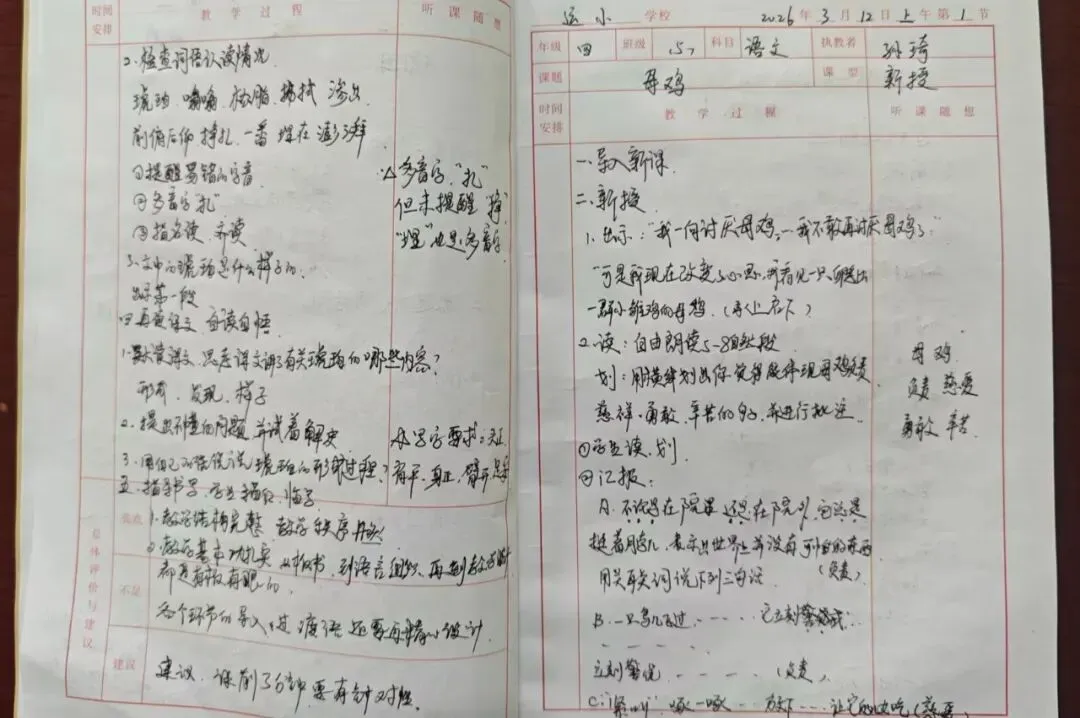 时间安排 教学过程 听课随想
2、检查词语认读情况
琥珀 嗡嗡 松脂 拂拭 渗出
前俯后仰 挣扎 一番 埋在 澎湃
①提醒易错的字音
②多音字“扎” △多音字“扎”
但未提醒“挣”
③指名读、齐读 “埋”也是多音字
3、文中的琥珀是什么样子的
出示第一段
四、再读课文 自读自悟
1、默读课文,思考课文讲了有关琥珀的哪些内容?
形成、发现、样子
2、提出不懂的问题,并试着解决 写字要求:
3、用自己的话说说琥珀的形成过程? 肩平、身正、臂开、足安
五、指导书写,学生描红、临写
总体评价与建议
优点 1、教学结构完整 教学秩序
2、教学基本功扎实 从板书,到语言组织,再到
都是有板有眼的
不足 各个环节的导入、过渡语还要再精心设计
建议 建议:课前3分钟要有针对性
远小 学校 2026年3月12日上午第1节
年级 四 班级 科目 语文 执教者 孙琦
课题 母鸡 课型 新授
时间安排 教学过程 听课随想
一、导入新课
二、新授
1、出示:“我一向讨厌母鸡。—我不敢再讨厌母鸡了。”
“可是我现在改变了心思,我看见一只孵出
一群小雏鸡的母鸡。(承上启下)
2、读:自由朗读5-8自然段 母鸡
划:用横线划出你觉得能体现母鸡负责、 负责 慈爱
慈祥、勇敢、辛苦的句子,并进行批注 勇敢 辛苦
①学生读、划
②汇报:
A、不论是在院里,还是在院外,它总是
挺着脖儿,表示出世界上并没有可怕的东西
(负责)
用关联词说下列三句话
B、一只鸟儿飞过,…… 它立刻警戒
立刻警戒 (负责)
C、 啄一啄 放下 … 让它的儿女吃(慈爱)